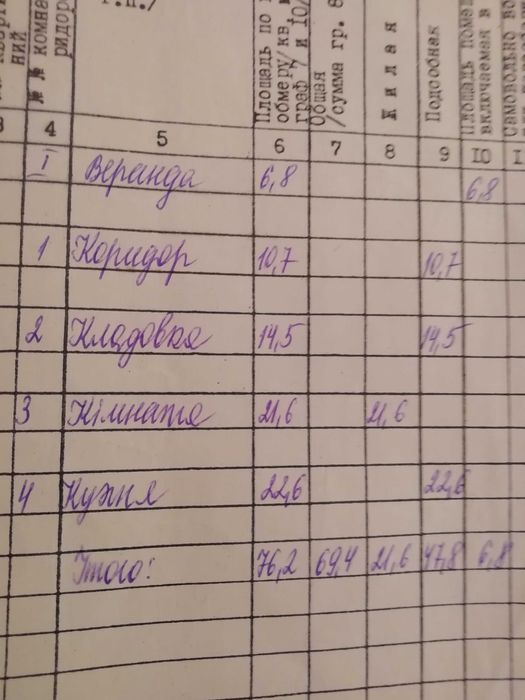 ний
№ № комна
ридор
Площадь по
обмеру/кв.
граф 7 и 10/
Общая
/сумма гр. 8
Жилая
Подсобная
Площадь
включаемая в
Самовольно
4 5 6 7 8 9 10
I Веранда 6,8 6,8
1 Коридор 10,7 10,7
2 Кладовка 14,5 14,5
3 Кімната 21,6 21,6
4 Кухня 22,6 22,6
Итого: 76,2 69,4 21,6 47,8 6,8